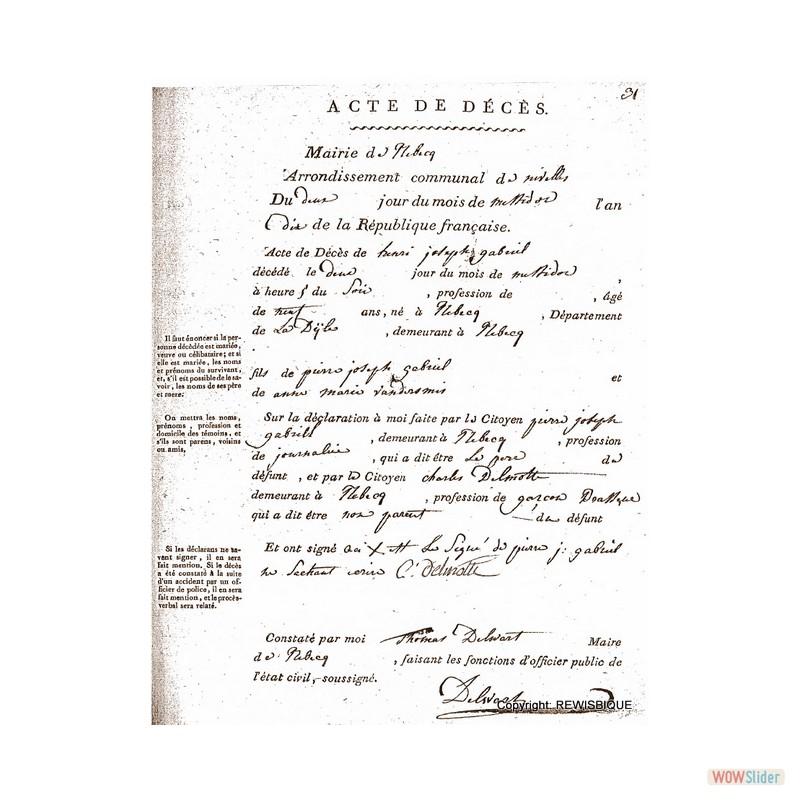 31
ACTE DE DÉCÈS.
Mairie de Rebecq
Arrondissement communal de nivelles
Du deux jour du mois de messidor l'an
dix de la République française.
Acte de Décès de henri joseph gabriel
décédé le deux jour du mois de messidor,
à heure 5 du Soir, profession de , âgé
de neuf ans, né à Rebecq, Département
de La Dÿle, demeurant à Rebecq
Il faut énoncer si la per-
sonne décédée est mariée,
veuve ou célibataire; et si
elle est mariée, les noms
et prénoms du survivant,
et, s'il est possible de le sa-
voir, les noms de ses père
et mere.
fils de pierre joseph gabriel et
de anne marie
On mettra les noms,
prénoms, profession et
domicile des témoins, et
s'ils sont parens, voisins
ou amis.
Sur la déclaration à moi faite par le Citoyen pierre joseph
gabriel, demeurant à Rebecq, profession
de journalier, qui a dit être Le pere du
défunt, et par le Citoyen charles Delmotte
demeurant à Rebecq, profession de garcon
qui a dit être non parent du défunt
Si les déclarans ne sa-
vent signer, il en sera
fait mention. Si le décès
a été constaté à la suite
d'un accident par un of-
ficier de police, il en sera
fait mention, et le procès-
verbal sera relaté.
Et ont signé Le Signé de pierre j: gabriel
ne Sachant ecrire C: Delmotte
Constaté par moi Thomas Delwart Maire
de Rebecq, faisant les fonctions d'officier public de
l'état civil, soussigné.
Delwart
Copyright: REWISBIQUE
WOWSlider